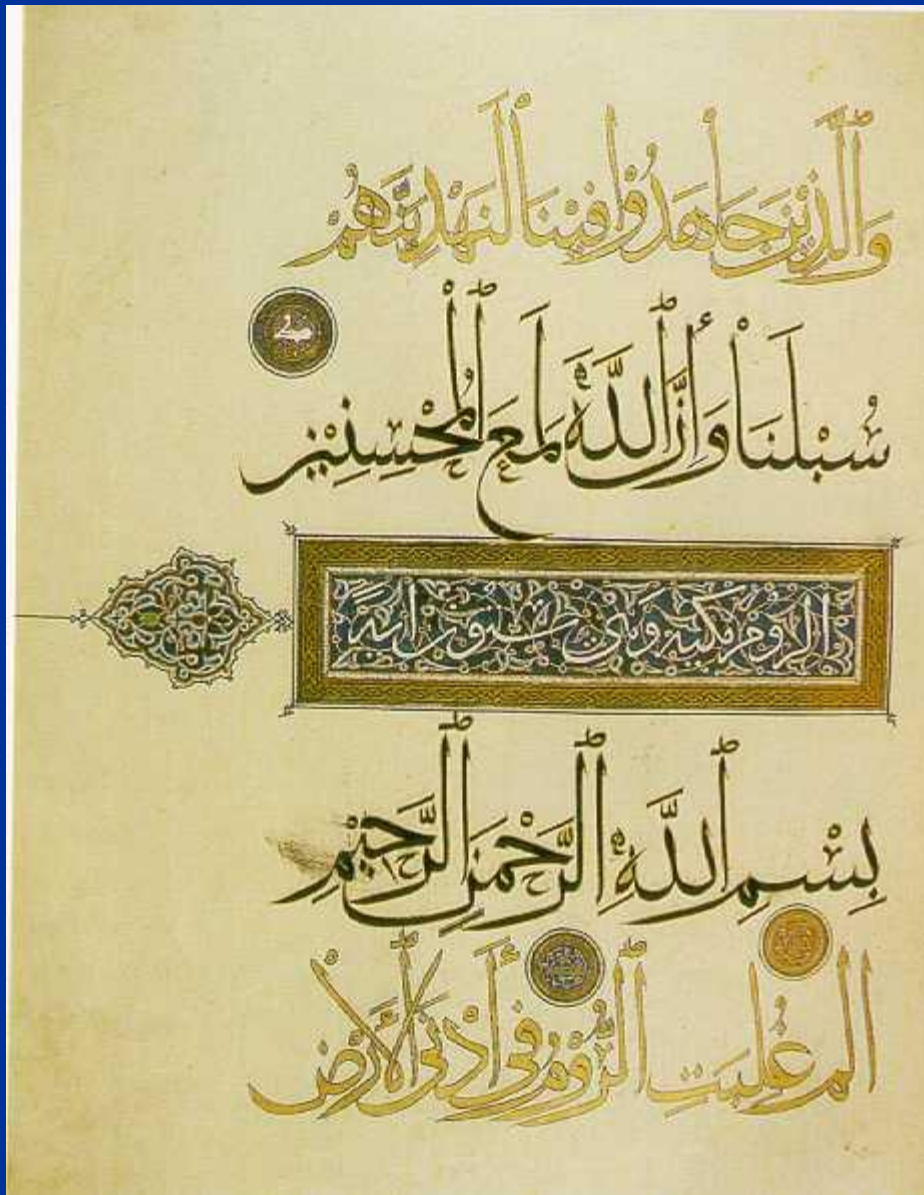 وَٱلَّذِينَ جَاهَدُوا فِينَا لَنَهْدِيَنَّهُمْ
سُبْلَنَا وَأَنَّ ٱللَّهَ لَمَعَ ٱلْمُحْسِنِينَ
الروم مكية وهي ستون اية
بِسْمِ ٱللَّهِ ٱلرَّحْمَنِ ٱلرَّحِيمِ
الم غُلِبَتِ ٱلرُّومُ فِي أَدْنَى ٱلْأَرْضِ